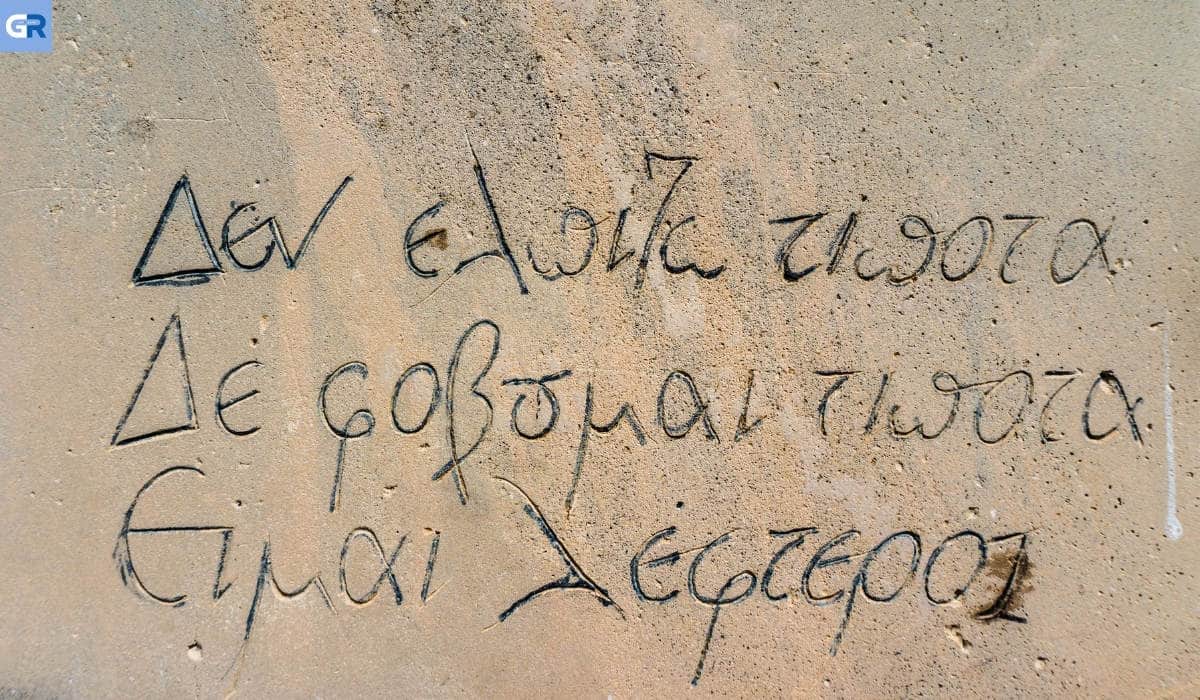 GR
Δεν ελπιζω τιποτα
Δε φοβȣμαι τιποτα
Ειμαι λεφτερος